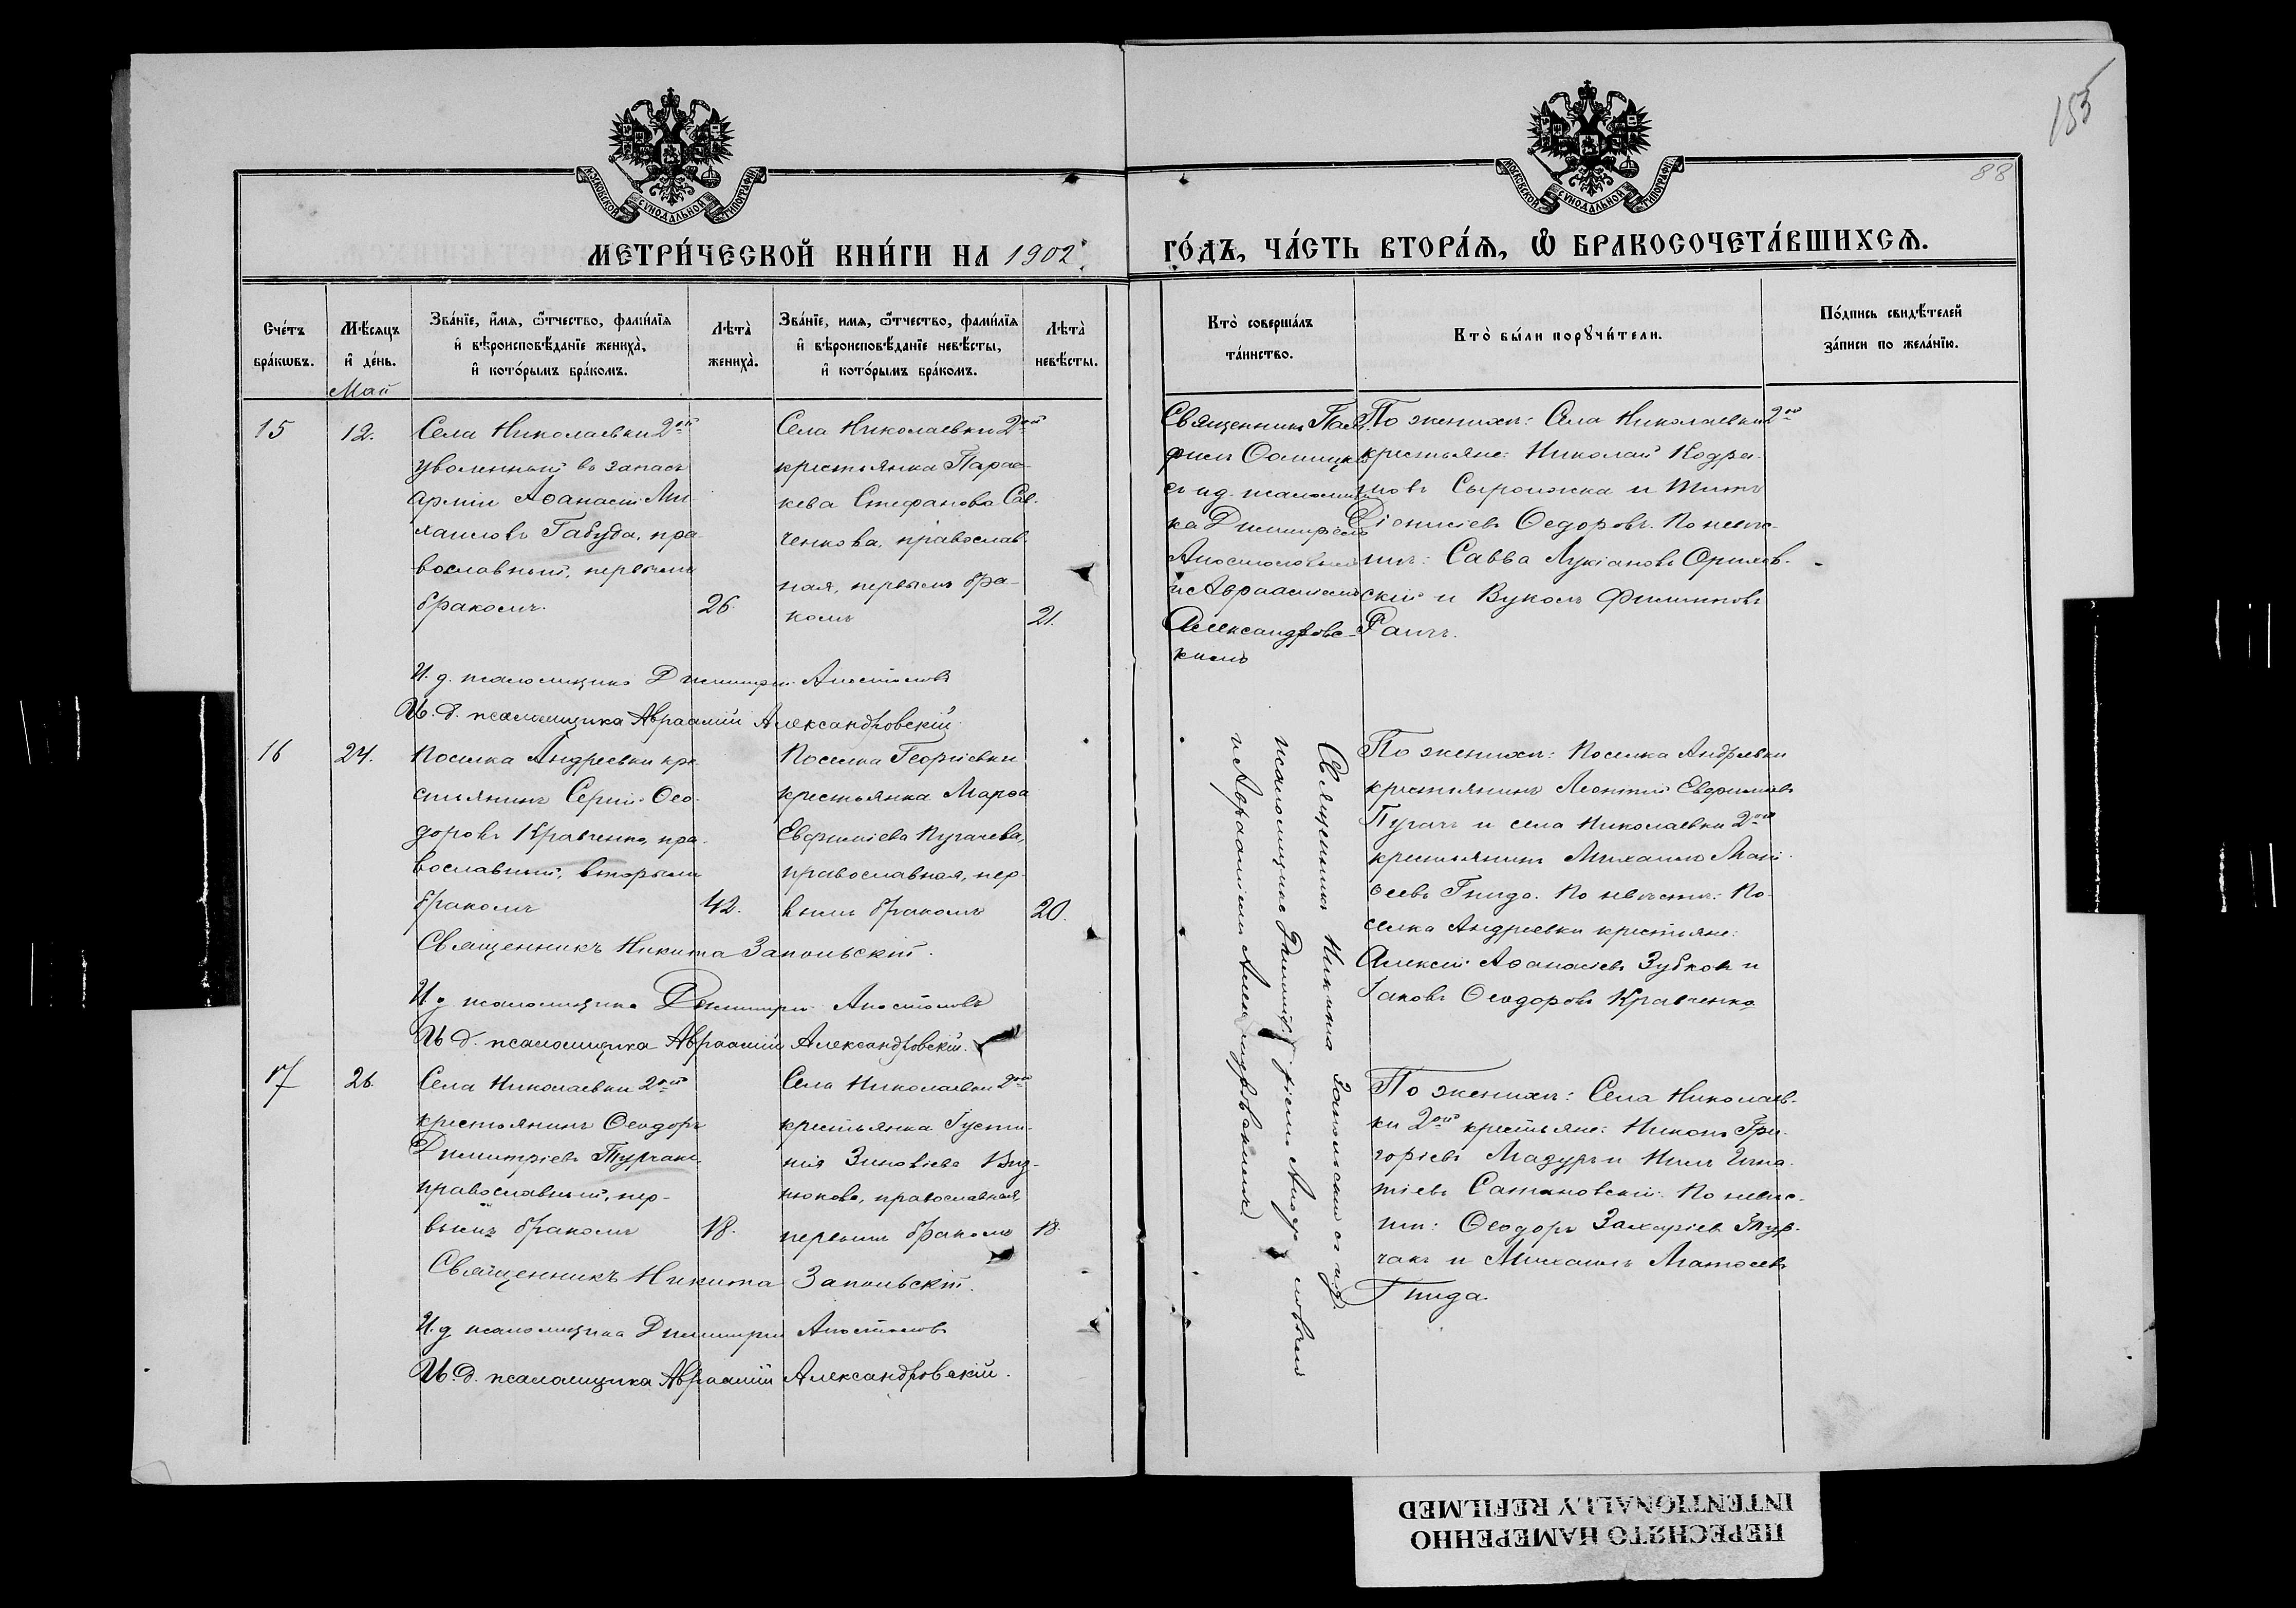 155
88
МОСКОВСКОЙ СѴНОДАЛЬНОЙ ТИПОГРАФІИ
МОСКОВСКОЙ СѴНОДАЛЬНОЙ ТИПОГРАФІИ
МЕТРИ́ЧЕСКОЙ КНИ́ГИ НА 1902
ГО́ДЪ, ЧА́СТЬ ВТОРА́Я, Ѡ БРАКОСОЧЕТА́ВШИХСЯ.
Сче́тъ
бра́кѡвъ.
Мѣ́сяцъ
и҆ де́нь.
Зва́нїе, и҆́мя, ѻ҆́тчество, фами́лїя
и҆ вѣроисповѣ́данїе жениха̀,
и҆ кото́рымъ бра́комъ.
Лѣта̀
жениха̀.
Зва́нїе, имя, ѻ҆́тчество, фами́лїя
и҆ вѣроисповѣ́данїе невѣ́сты,
и҆ кото́рымъ бра́комъ.
Лѣта̀
невѣ́сты.
Кто̀ соверша́лъ
та́инство.
Кто̀ бы́ли порꙋчи́тели.
По́дпись свидѣ́телей
за́писи по жела́нїю.
Май
15
12.
Села Николаевки 2ой
уволенный въ запасъ
арміи Аѳанасій Ми-
хаиловъ Габуда, пра-
вославный, первымъ
бракомъ.
26.
Села Николаевки 2ой
крестьянка Парас-
кева Стефанова Сав-
ченкова, православ-
ная, первымъ бра-
комъ
21.
Священникъ
съ и.д. псаломщи-
ка Димитріемъ
Апостоловымъ
и Авраамiемъ
Александровс-
кимъ
По женихѣ: Села Николаевки 2ой
крестьяне: Николай Кодра-
товъ Сыроижка и Титъ
Діонисіевъ Ѳедоровъ. По невѣс-
тѣ: Савва Лукіановъ
скій и Вуколъ Филиповъ
И. д. псаломщика Димитрій Апостоловъ
И. д. псаломщика Авраамій Александровскій.
16
24.
Поселка Андреевки кре-
стьянинъ Сергій Ѳео-
доровъ Кравченко, пра-
вославный, вторымъ
бракомъ
42.
Поселка Георгіевки
крестьянка Марѳа
Евфиміева Пугачева,
православная, пер-
вымъ бракомъ
20.
Священникъ Никита Запольскій съ и.д.
псаломщика Димитріемъ Апостоловымъ
и Авраамiемъ Александровскимъ
По женихѣ: Поселка Андреевки
крестьянинъ Леонтій Евфиміевъ
Пугачъ и села Николаевки 2ой
крестьянинъ Михаилъ Мат-
ѳеевъ Гнида. По невѣстѣ: По-
селка Андреевки крестьяне:
Алексій Аѳанасіевъ Зубковъ и
Іаковъ Ѳеодоровъ Кравченко
Священникъ Никита Запольскій.
И д псаломщика Димитрій Апостоловъ
И. д. псаломщика Авраамій Александровскій.
17
26
Села Николаевки 2ой
крестьянинъ Ѳеодоръ
Димитріевъ Турчакъ,
православный, пер-
вымъ бракомъ
18.
Села Николаевки 2ой
крестьянка Густи-
нія Зиновіева
православная,
первымъ бракомъ
18.
По женихѣ: Села Николаев-
ки 2ой крестьяне: Никонъ Гри-
горіевъ Мазуръ и Нилъ Игна-
тіевъ Сатановскій. По невѣс-
тѣ: Ѳеодоръ Захаріевъ Тур-
чакъ и Михаилъ Матѳеевъ
Гнида.
Священникъ Никита Запольскій.
И. д псаломщика Димитрій Апостоловъ
И. д. псаломщика Авраамій Александровскій.
ПЕРЕСНЯТО НАМЕРЕННО
INTENTIONALLY REFILMED